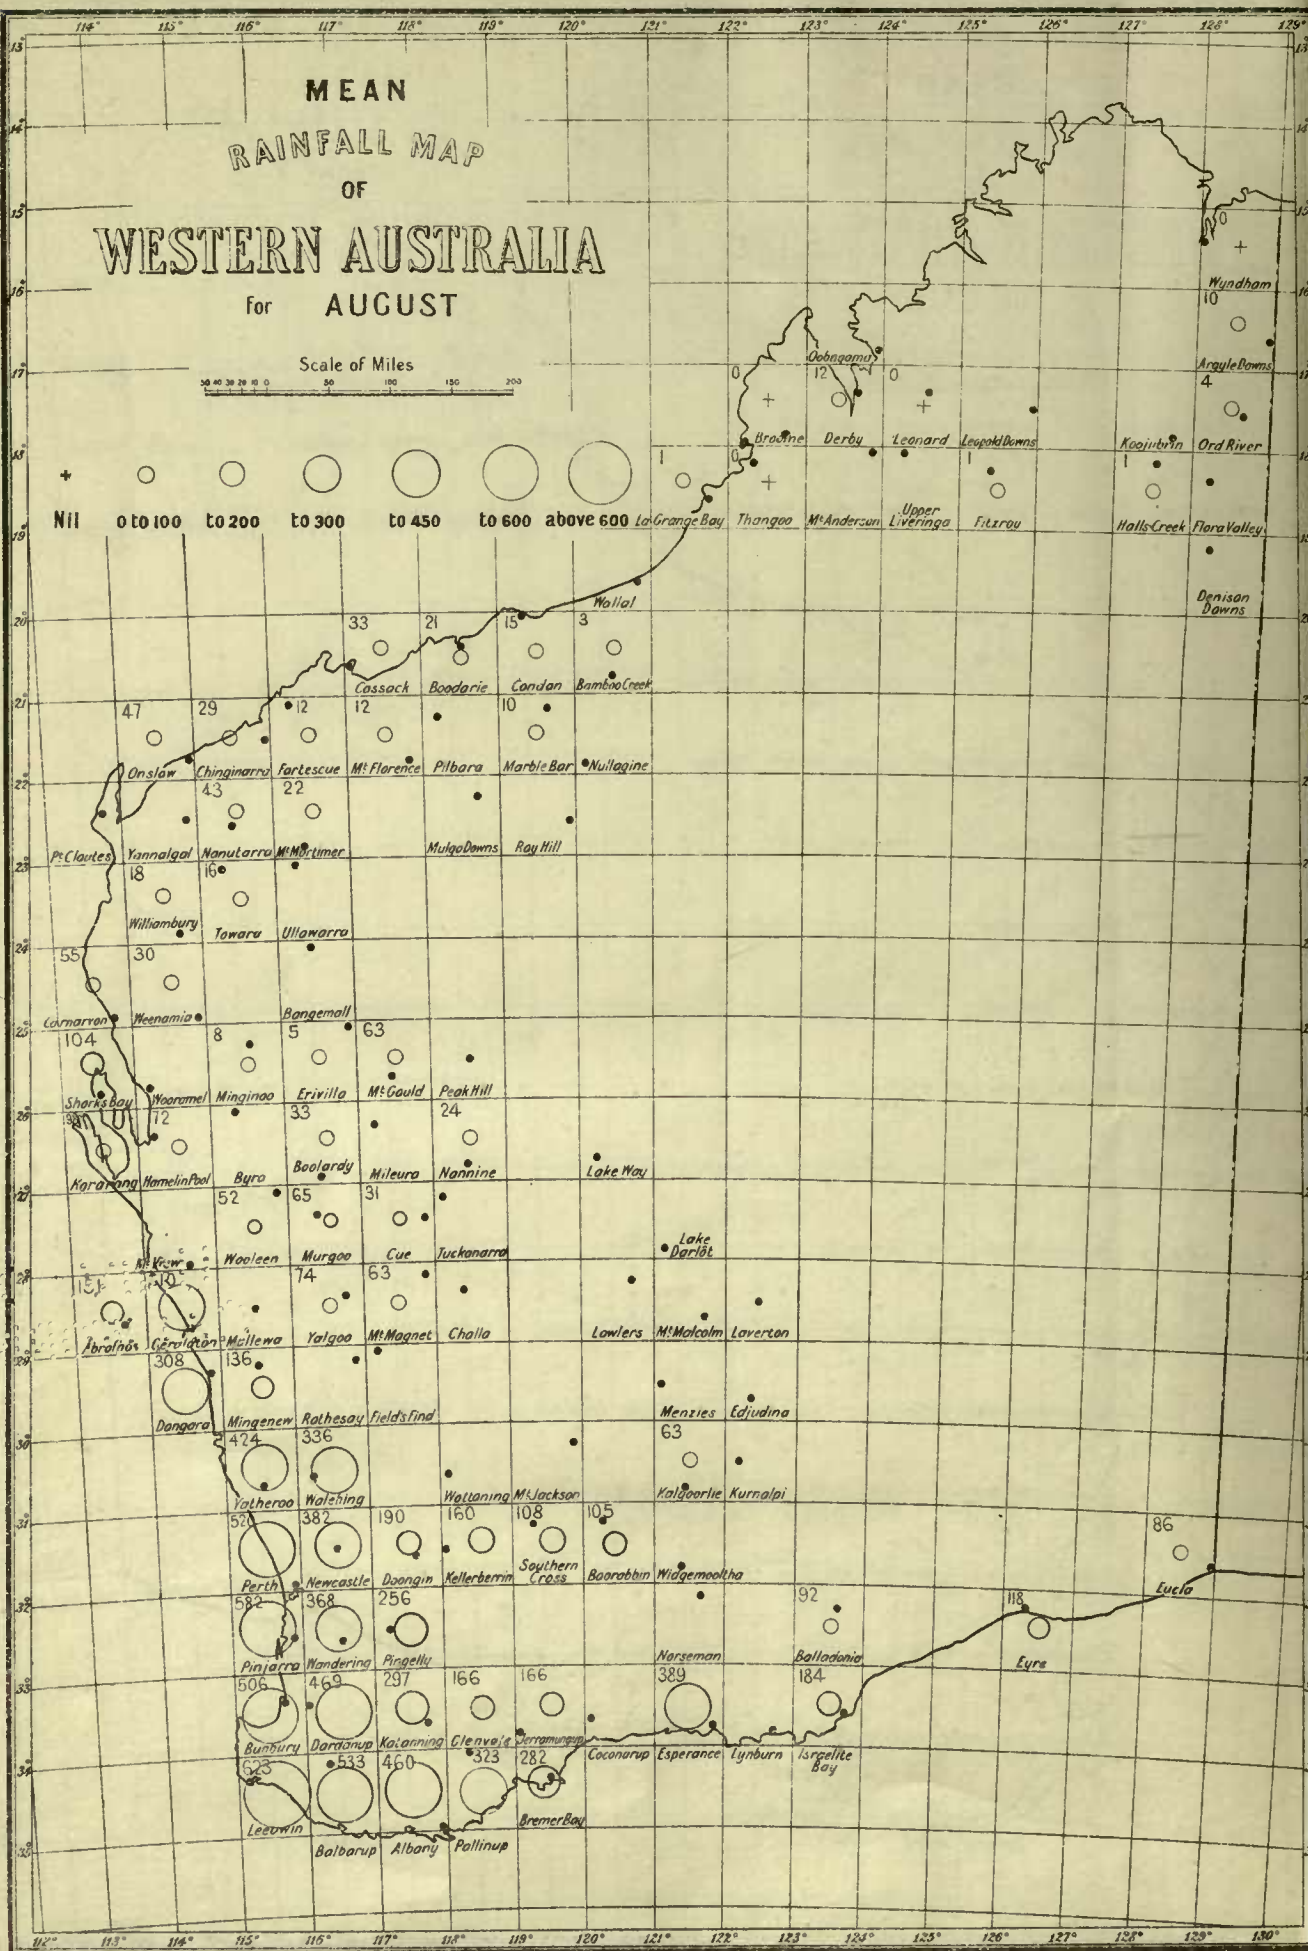 114° 115° 116° 117° 118° 119° 120° 121° 122° 123° 124° 125° 126° 127° 128° 129°
MEAN
RAINFALL MAP
OF
WESTERN AUSTRALIA
for AUGUST
Scale of Miles
50 40 30 20 10 0 50 100 150 200
Nil 0 to 100 to 200 to 300 to 450 to 600 above 600
13°
14°
15°
16°
17°
18°
19°
20°
21°
22°
23°
24°
25°
26°
27°
28°
29°
30°
31°
32°
33°
34°
35°
0
Wyndham
10
Oobagama
Argyle Downs
0 12 0 4
Broome Derby Leonard Leopold Downs Koojubrin Ord River
1 0 1 1
La Grange Bay Thangoo Mt Anderson Upper Liveringa Fitzroy Halls Creek Flora Valley
Denison Downs
Wallal
33 21 15 3
Cossack Boodarie Condon Bamboo Creek
47 29 12 12 10
Onslow Chinginarra Fortescue Mt Florence Pilbara Marble Bar Nullagine
43 22
Pt Cloates Yannalgal Nanutarra Mt Mortimer Mulga Downs Roy Hill
18 16
Williambury Towara Ullawarra
55 30
Carnarvon Weenamia Bangemall
104 8 5 63
Sharks Bay Wooramel Minginoo Erivilla Mt Gould Peak Hill
72 33 24
Kararang Hamelin Pool Byro Boolardy Mileura Nannine Lake Way
52 65 31
Wooleen Murgoo Cue Tuckanarra Lake Darlôt
74 63
Abrolhos Geraldton Mullewa Yalgoo Mt Magnet Challa Lawlers Mt Malcolm Laverton
308 136
Dongara Mingenew Rothesay Field's Find Menzies Edjudina
424 336 63
Yatheroo Walebing Wattoning Mt Jackson Kalgoorlie Kurnalpi
520 382 190 160 108 105 86
Perth Newcastle Doongin Kellerberrin Southern Cross Boorabbin Widgemooltha Eucla
582 368 256 92 118
Pinjarra Wandering Pingelly Norseman Balladonia Eyre
506 469 297 166 166 389 184
Bunbury Dardanup Katanning Glenvale Jerramungup Coconarup Esperance Lynburn Israelite Bay
623 533 460 323 282
Leeuwin Balbarup Albany Pallinup Bremer Bay
112° 113° 114° 115° 116° 117° 118° 119° 120° 121° 122° 123° 124° 125° 126° 127° 128° 129° 130°